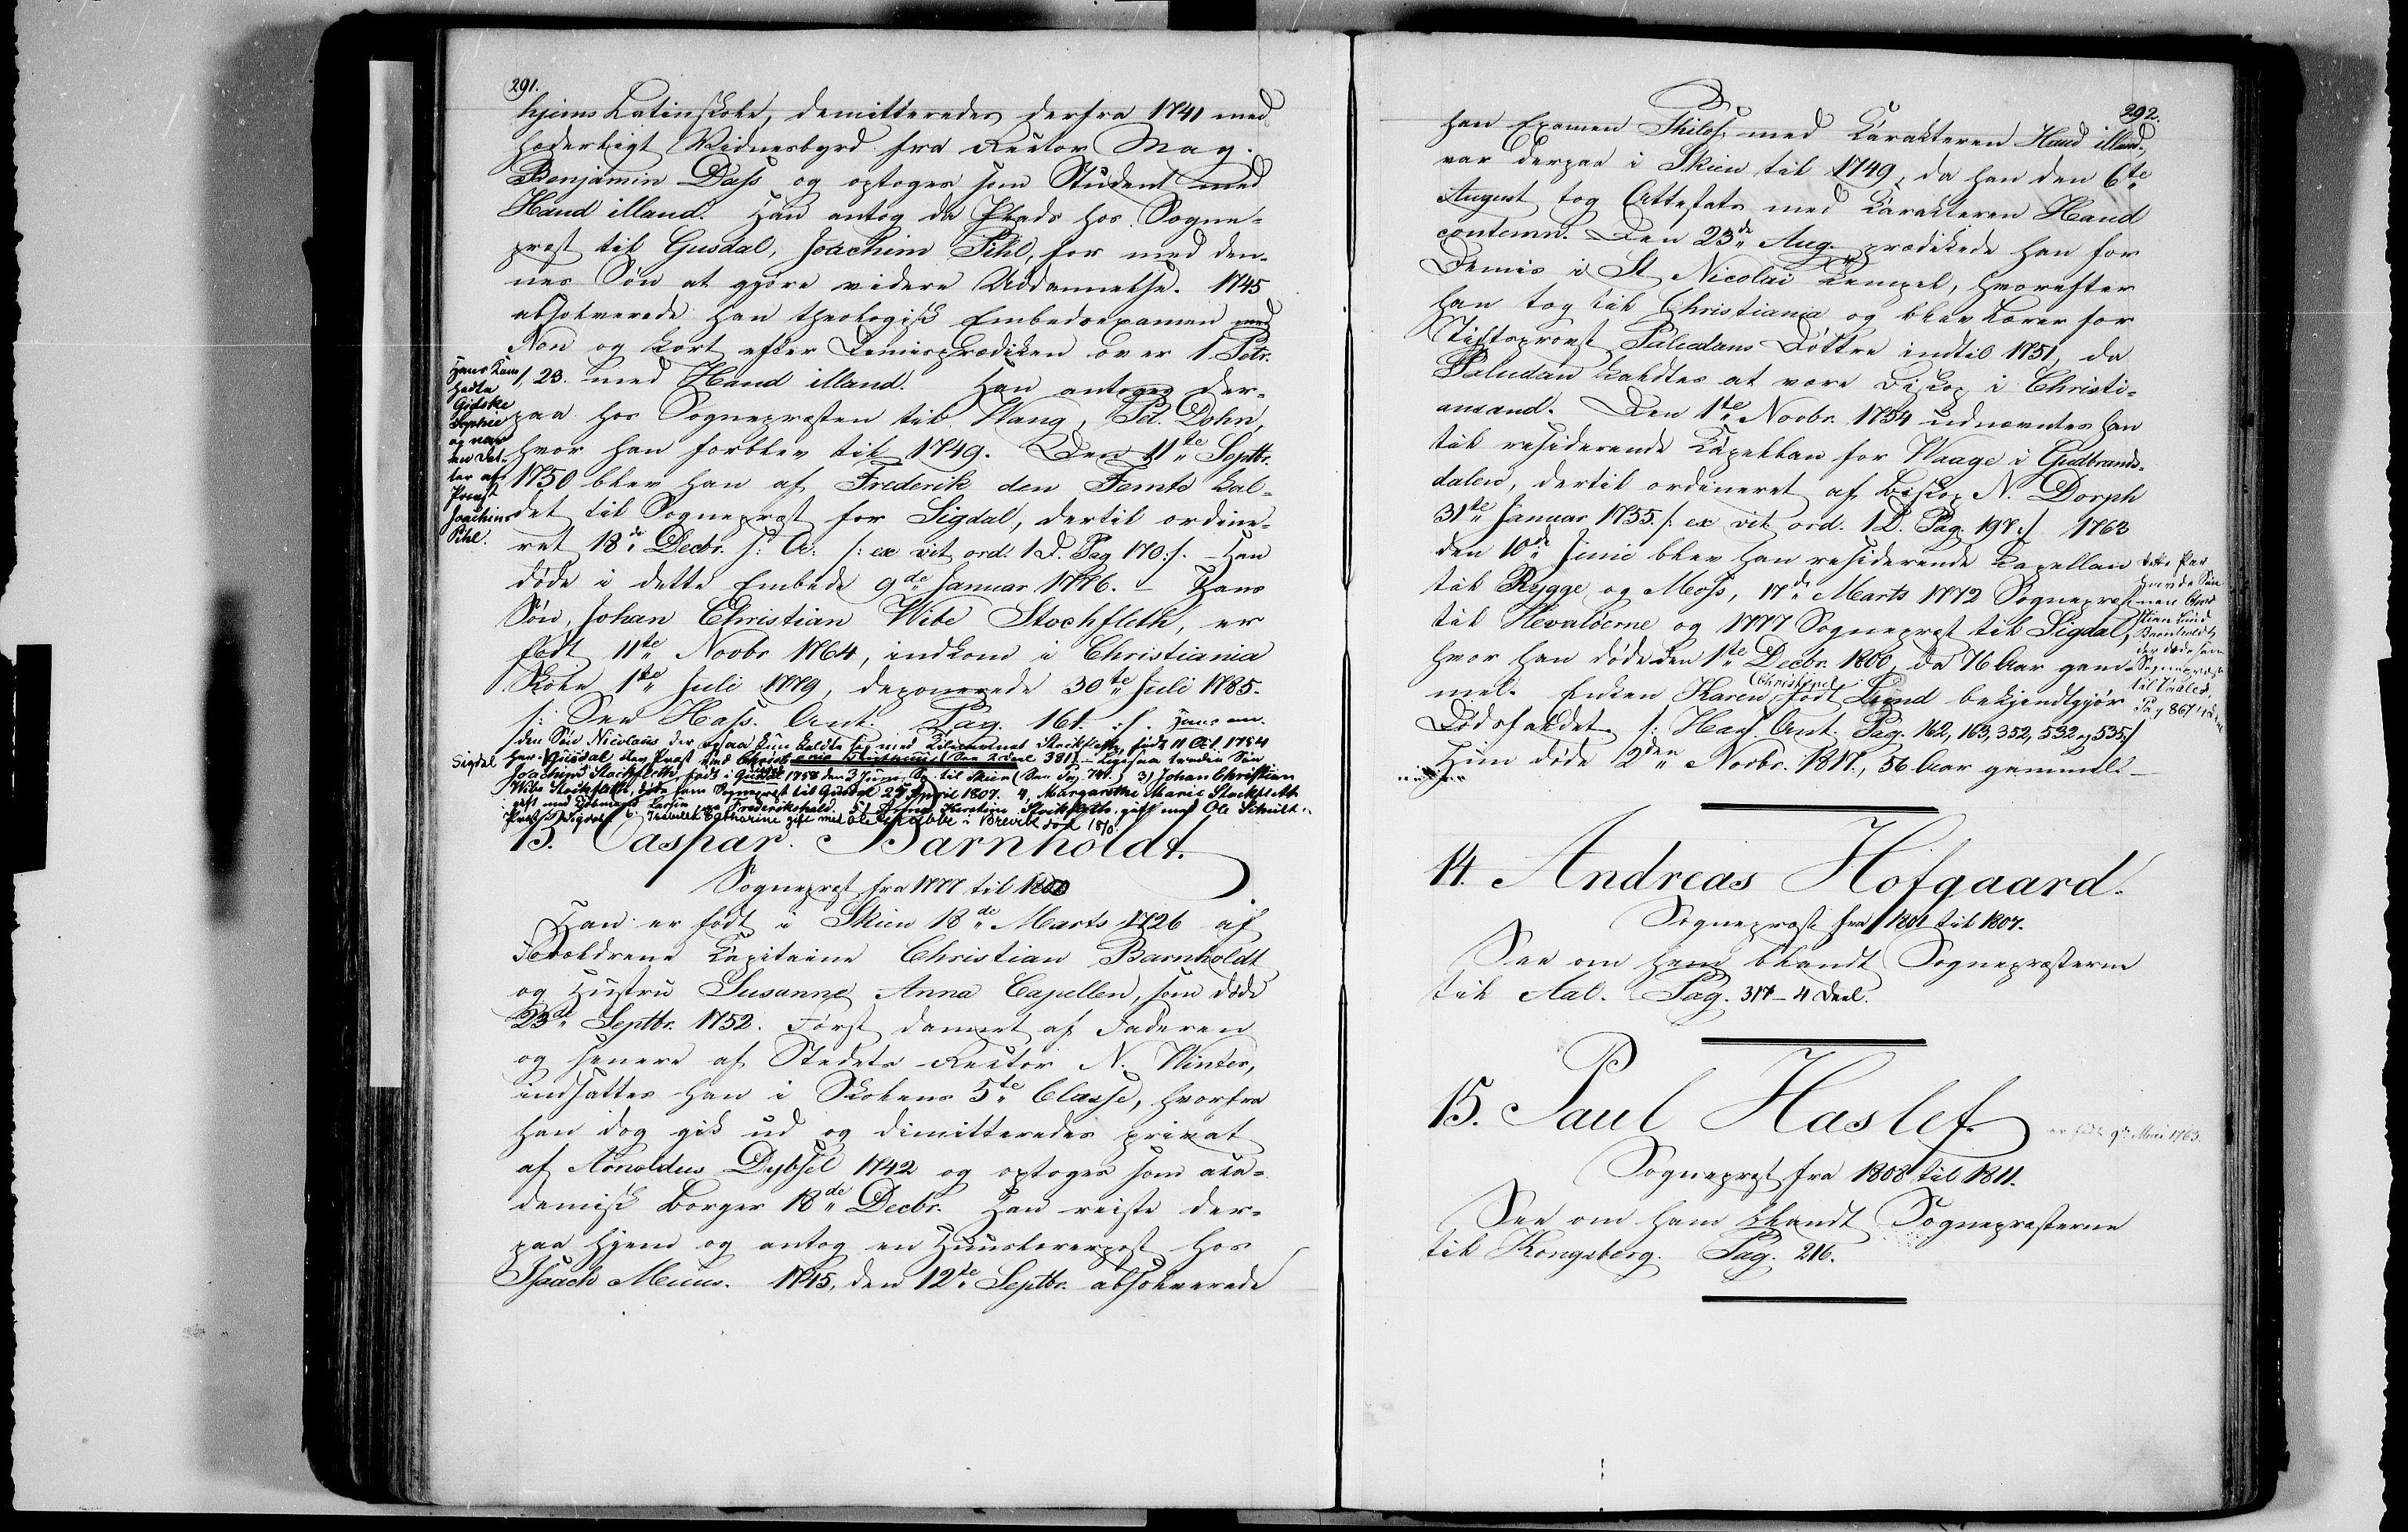 291.
hjems Latinskole, demitteredes derfra 1741 med
hæderligt Vidnesbyrd fra Rector Mag.
Benjamin Dass og optoges som Student med
Haud illaud. Han antog da Plads hos Sogne-
præst til Gusdal, Joachim Pihl, for med den-
nes Søn at gjøre videre Uddannelse. 1745
absolverede han theologisk Embedsexamen med
Non og kort efter Demisprædiken over 1 Petr.
1, 23. med Haud illaud. Han antoges der-
paa hos Sognepræsten til Wang, Pet. Dohn,
hvor han forblev til 1749. Den 11te Septbr.
1750 blev han af Frederik den Femte kal-
det til Sognepræst for Sigdal, dertil ordine-
ret 18de Decbr. s: A: /: ex vit. ord. 1 D. Pag 170 :/. - Han
døde i dette Embede 9de Januar 1776. - Hans
Søn, Johan Christian Wibe Stochfleth, er
født 11te Novbr 1764, indkom i Christiania
Skole 1ste Juli 1779, deponerede 30te Juli 1785.
/: See Hass. Ant. Pag. 161. :/. Hans an-
den Søn Nicolaus der ogsaa kun kaldte sig med Tilnavnet Stockfleth, født 11 Oct. 1754
Gusdal blev Præst ved (See 2 Deel 381) - Ligesaa tredie Søn
Joachim Stockfleth, født i Gusdal 1758 den 3 Juni, Sp. til Skien (See Pag 741.) 3) Johan Christian
Wibe Stockfleth, døde som Sognepræst til Gusdal 27 April 1807. 4, Margarethe Marie Stockfleth
gift med Kjøbmand Larsen paa Frederikshald. 5) Anna Kirstine Stockfleth, gift med Ole Schult
Præst i Sigdal 6 Isabella Catharine gift med Ole i Brevik død 1810.
Hans Kone
hedte
Gidske
Sophie
og var
en Dat-
ter af
Præst
Joachim
Pihl.
Sigdal
13. Caspar Barnholdt.
Sognepræst fra 1777 til 1800
Han er født i Skien 18de Marts 1726 af
Forældrene Capitaine Christian Barnholdt
og Hustru Susanne Anna Capellen, som døde
23de Septbr. 1752. Først dannet af Faderen
og senere af Stedets Rector N. Winter,
indsattes han i Skolens 5te Classe, hvorfra
han dog gik ud og dimitteredes privat
af Arnoldus Dybsel 1742 og optoges som aca-
demisk Borger 18de Decbr. Han reiste der-
paa hjem og antog en Huuslærerpost hos
Isaach Meuus. 1745, den 12te Septbr. absolverede
292.
han Examen Philos. med Karakteren Haud illaud.,
var derpaa i Skien til 1749, da han den 6te
August tog Attestats med Karakteren Haud
contemn. Den 23de Aug. prædikede han for
Demis i St Nicolai Tempel, hvorefter
han tog til Christiania og blev Lærer for
Stiftsprovst Paludans Døttre indtil 1751, da
Paludan kaldtes at være Biskop i Christi-
ansand. Den 1ste Novbr. 1754 udnævntes han
til residerende Kapellan for Waage i Gudbrands-
dalen, dertil ordineret af Biskop N. Dorph
31te Januar 1755. /: ex vit. ord. 1 D. Pag. 197 :/ 1763
den 10de Junii blev han residerende Kapellan
til Rygge og Moss, 17de Marts 1772 Sognepræst
til Hevaløerne og 1777 Sognepræst til Sigdal,
hvor han døde den 1ste Decbr. 1800, da 76 Aar gam-
mel. Enken Karen Christine født Lund bekjendtgjør
Dødsfaldet. /: Hass. Ant. Pag. 162, 163, 352, 532 og 535 :/
Hun døde 2den Novbr. 1817, 56 Aar gammel. -
Dette Par
havde Søn-
nen Chri-
stian Lund
Barnholdt,
der døde som
Sognepræst
til
Pag 867
14. Andreas Hofgaard.
Sognepræst fra 1801 til 1807.
See om ham blandt Sognepræsterne
til Aal. Pag. 317 - 4 Deel.
15. Paul Haslef.
er født 9de Mai 1763.
Sognepræst fra 1808 til 1811.
See om ham blandt Sognepræsterne
til Kongsberg. Pag. 216.